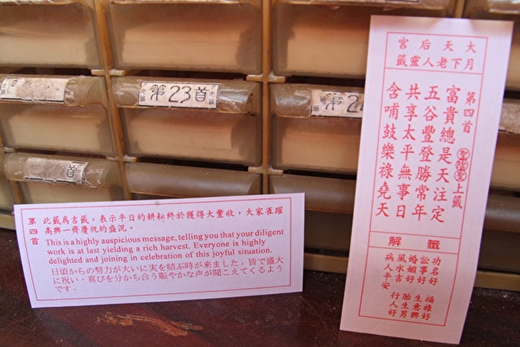 第23首
第2
首
大天后宮
月下老人靈籤
第四首
上籤
富貴總是天注定
五谷豐登勝常年
共享太平無事日
含哺鼓樂祿堯天
籤解
功名好
訟事好
婚姻好
風水吉
病人平安
第四首
此籤為吉籤，表示平日的耕耘終於獲得大豐收，大家雀躍
高興一齊慶祝的盛況。
This is a highly auspicious message, telling you that your diligent
work is at last yielding a rich harvest. Everyone is highly
delighted and joining in celebration of this joyful situation.
日頃からの努力が大いに実を結ぶ時が来ました。皆で盛大
に祝い、喜びを分かち合う賑やかな声が聞こえてくるよう
です。